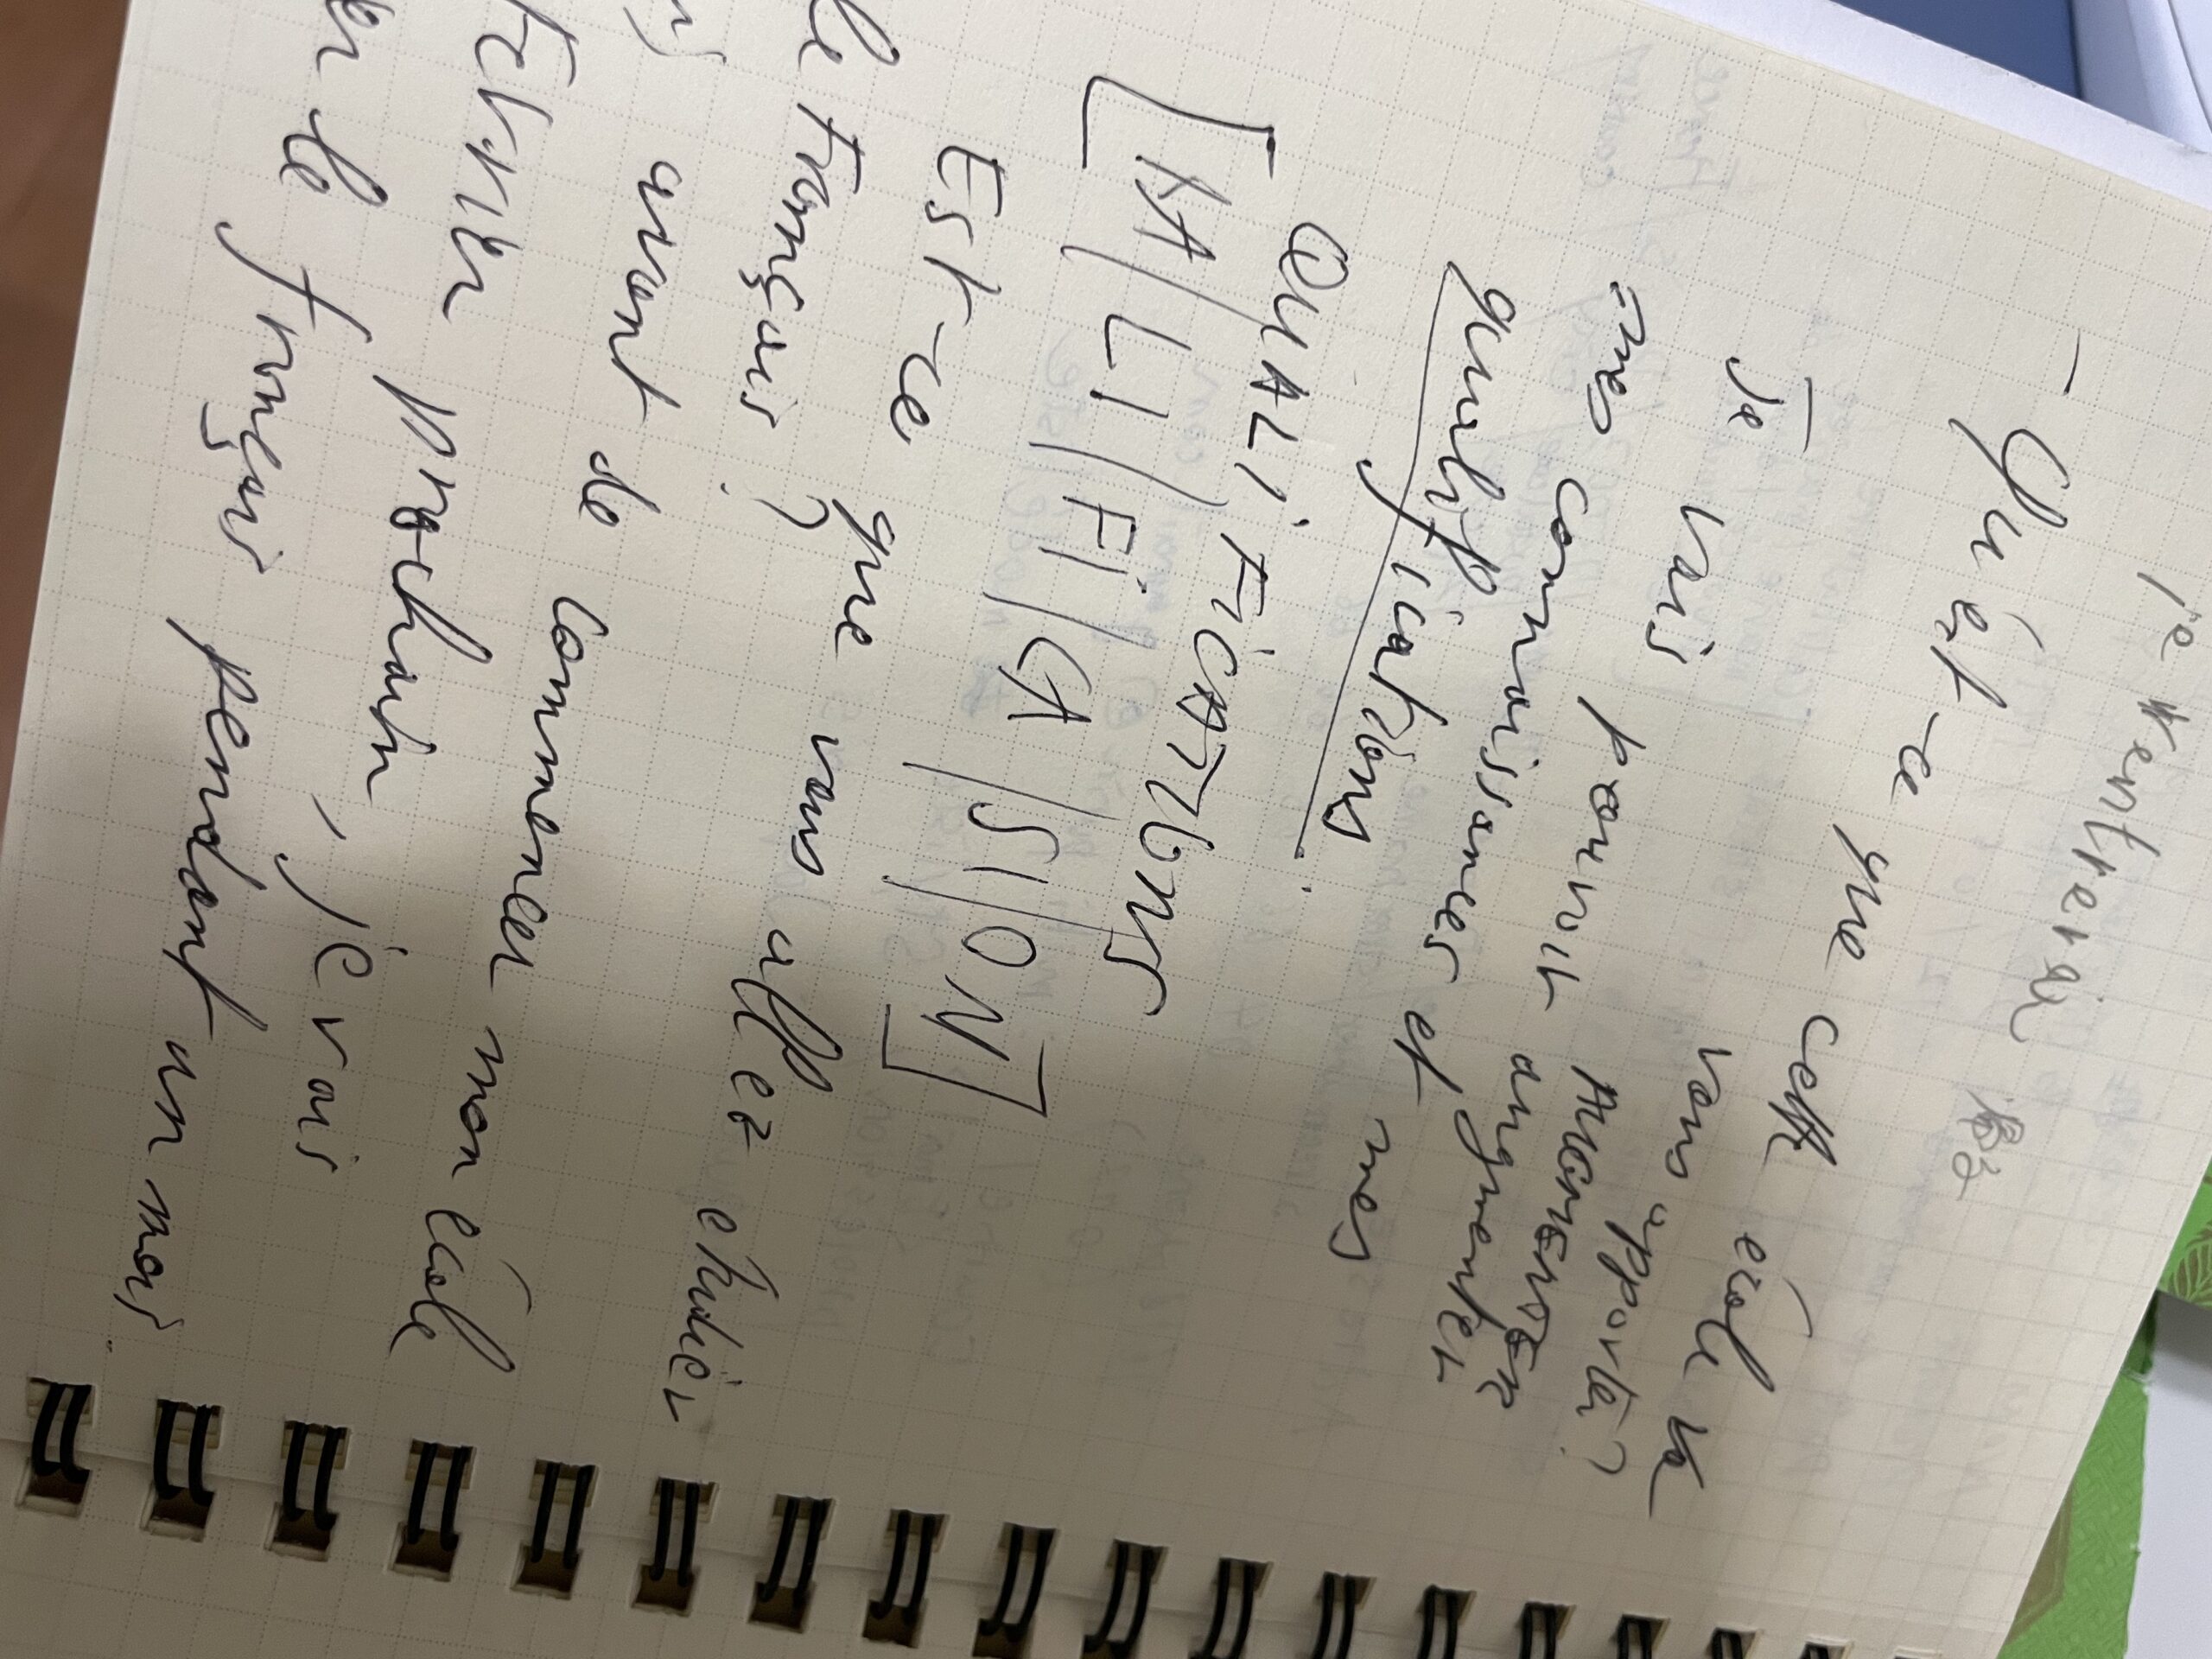 je rentrerai
- Qu'est-ce que cett école va
vous apporté?
- Je vais pouvoir AUGMENTER
augmenter
mes connaissances et mes
qualifications.
QUALIFICATIONS
[KA/LI/FI/CA/SI/ON]
Est-ce que vous allez étudier
le français?
avant de commencer mon école
FéVRIER prochain, je vais
le français pendant un mois.